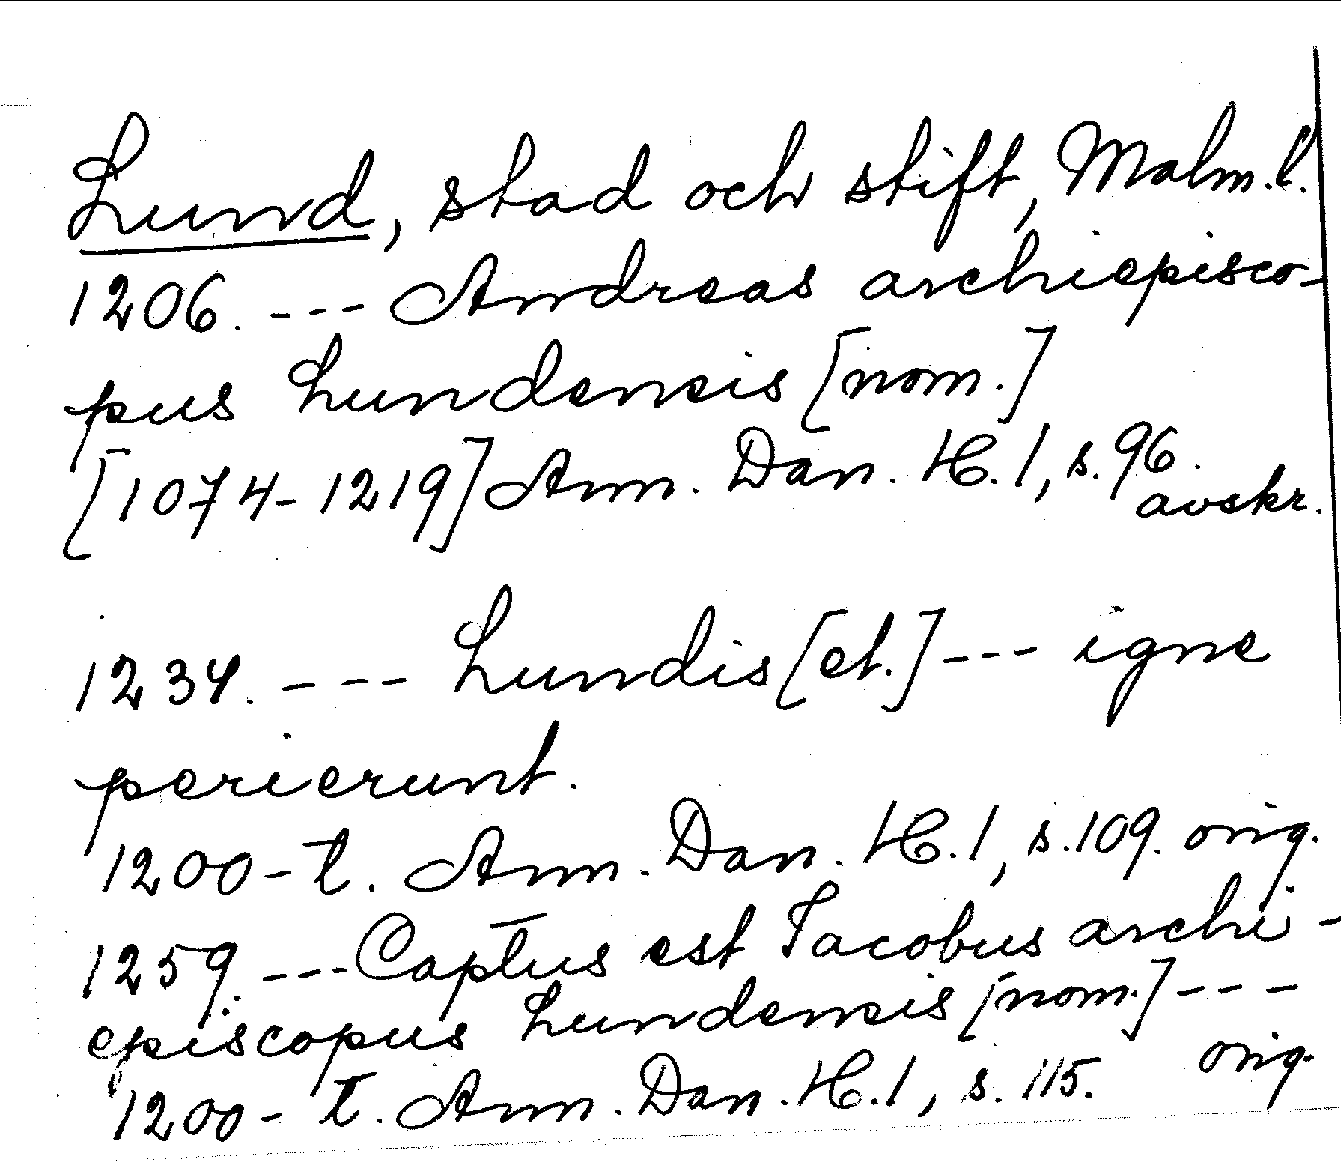 Lund, stad och stift, Malm.l.
1206. --- Andreas archiepisco-
pus Lundensis [nom.]
[1074-1219] Ann. Dan. H.1, s.96.
avskr.
1234. --- Lundis [et.] --- igne
perierunt.
1200-t. Ann. Dan. H.1, s.109. orig.
1259. --- Captus est Jacobus archi-
episcopus Lundensis [nom.] ---
1200-t. Ann. Dan. H.1, s. 115. orig.